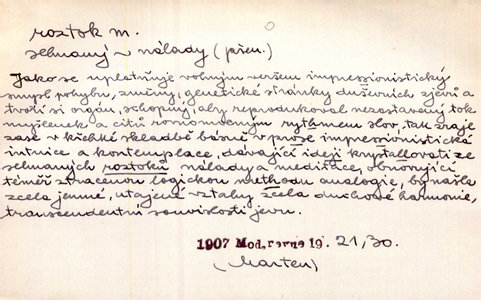 roztok m.
sehnaný v nálady (přen.)
Jako se uplatňuje volným veršem impressionistický
smysl pohybu, změny, genetické stránky duševních zjevů a
tvoří si orgán, schopný, aby reprodukoval nezastavený tok
myšlenek a citů rovnomocným rythmem slov, tak zraje
zase v křehké skladbě básně v prose impressionistická
intuice a kontemplace, dávající ideji krystallovati ze
sehnaných roztoků nálady a meditace, obnovující
téměř ztracenou logickou methodu analogie, by našla
zcela jemné, utajené vztahy zcela duchové harmonie,
transcendentní souvislosti jevů.
1907 Mod. revue 19. 21, 30.
(Marten)